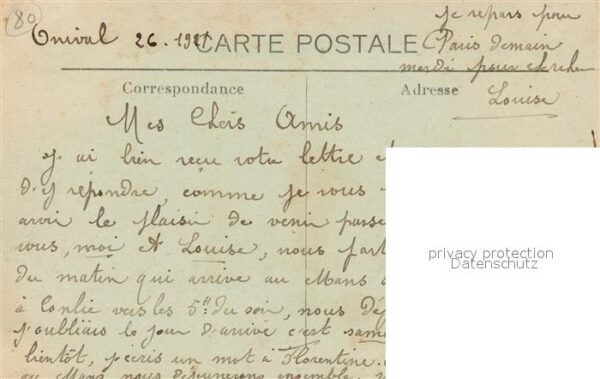 80
Onival 26. 1921
je repars pour
Paris demain
mardi pour chercher
Louise
CARTE POSTALE
Correspondance
Adresse
Mes Chers Amis
J'ai bien reçu votre lettre et
d'y répondre, comme je vous
avoir le plaisir de venir passe
vous, moi et Louise, nous part
du matin qui arrive au Mans
à Conlie vers les 5H du soir, nous
j'oubliais le jour d'arrivé c'est same
bientôt, j'écris un mot à Florentine.
au Mans nous déjeunerons ensemble,
privacy protection
Datenschutz